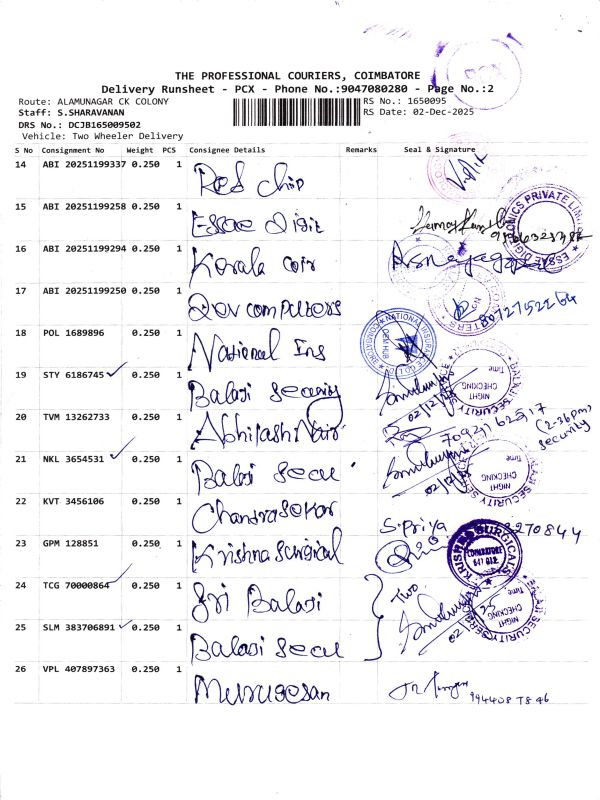 THE PROFESSIONAL COURIERS, COIMBATORE
Delivery Runsheet - PCX - Phone No.:9047080280 - Page No.:2
Route: ALAMUNAGAR CK COLONY RS No.: 1650095
Staff: S.SHARAVANAN RS Date: 02-Dec-2025
DRS No.: DCJB165009502
Vehicle: Two Wheeler Delivery
S No Consignment No Weight PCS Consignee Details Remarks Seal & Signature
14 ABI 20251199337 0.250 1 Red Chip
15 ABI 20251199258 0.250 1 Essae Digit
16 ABI 20251199294 0.250 1 Kerala coir
17 ABI 20251199250 0.250 1 Dev computers
18 POL 1689896 0.250 1 National Ins
19 STY 6186745 0.250 1 Balaji Security 02/12/25
20 TVM 13262733 0.250 1 Abhilash Nair (2-36pm) security
21 NKL 3654531 0.250 1 Balaji Secu 02/12/25
22 KVT 3456106 0.250 1 Chandrasekar S.Priya
23 GPM 128851 0.250 1 Krishna Surgical
24 TCG 70000864 0.250 1 Sri Balaji Two
25 SLM 383706891 0.250 1 Balaji Secu
26 VPL 407897363 0.250 1 Murugesan
KRISHNA SURGICALS
COIMBATORE
NIGHT CHECKING Time